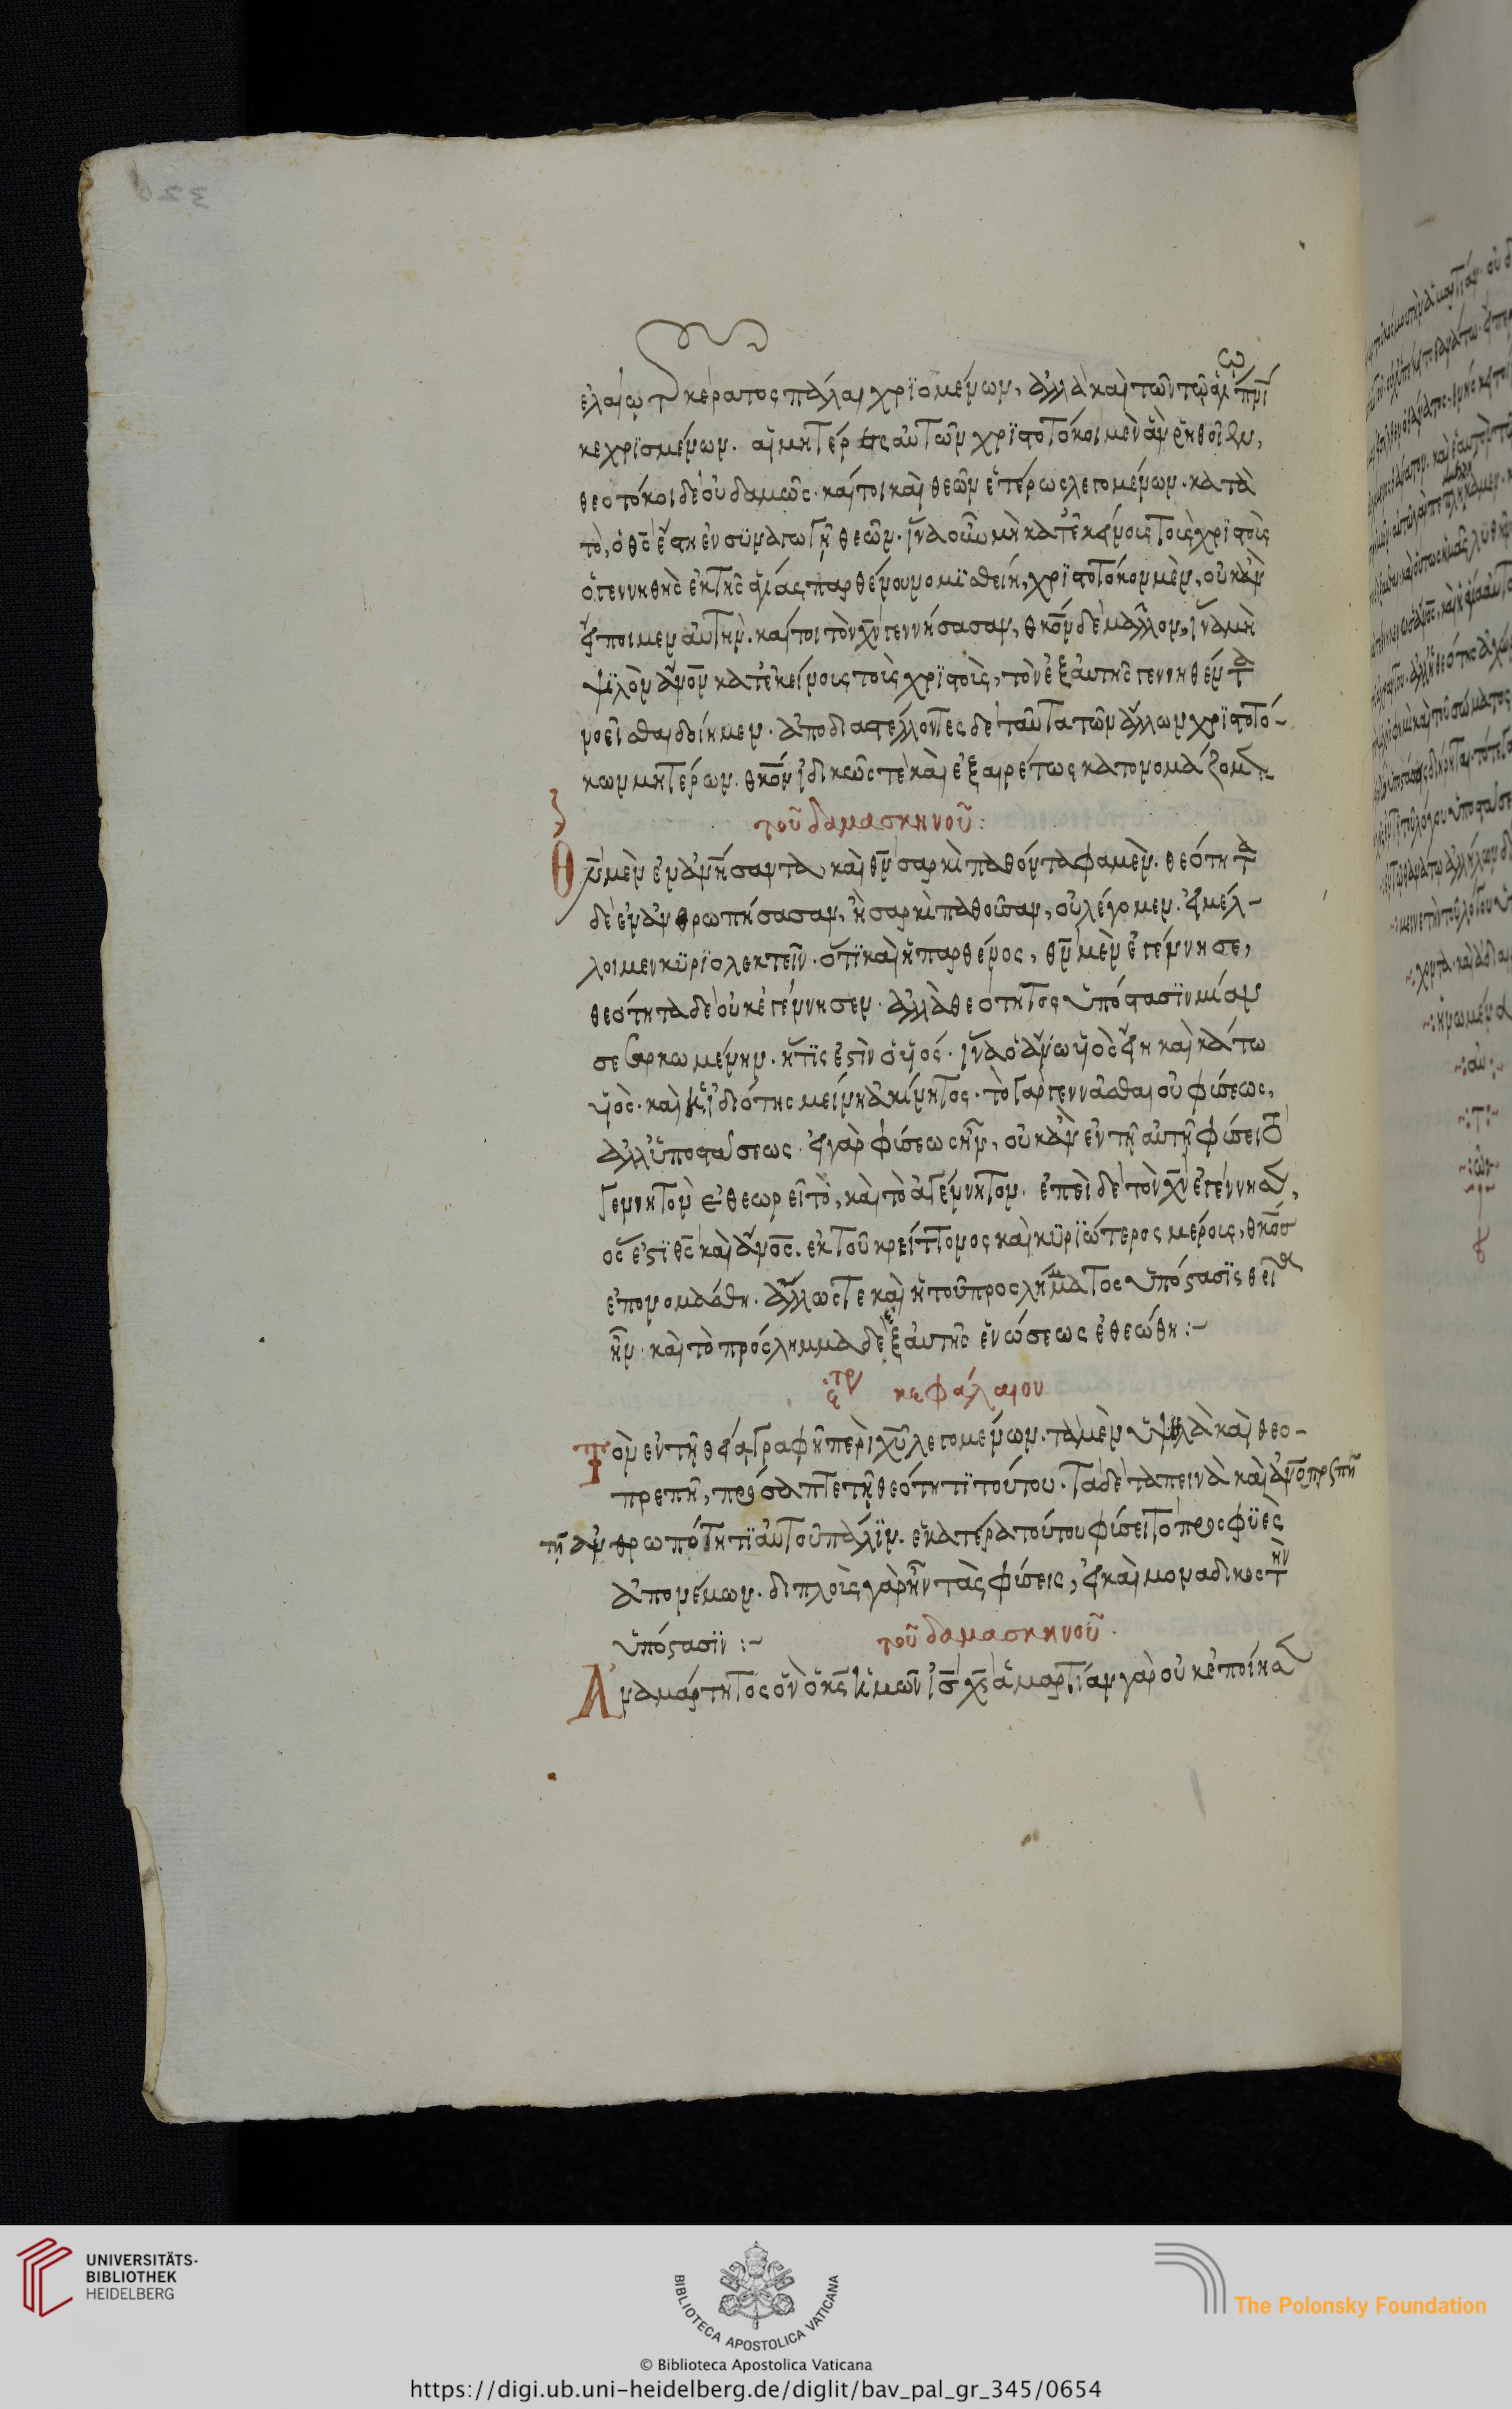 ἐλαίω τοῦ κέρατος πάλαι χρϊομένων, ἀλλὰ καὶ τῶν τῶ ἁγίω πνϊ
κεχρϊσμένων. αἱ μητέρες αὐτῶν χρϊστοτόκοι μὲν ἂν ῥηθοῖεν,
θεοτόκοι δὲ οὐδαμῶς. καίτοι καὶ θεῶν ἑτέρως λεγομένων. κατὰ
τὸ, ὁ θς ἔστη ἐν συναγωγῆ θεῶν. ἵνα οὖν μὴ κατ' ἐκείνοις τοῖς χρϊστοῖς
ὁ γεννηθεὶς ἐκ τῆς ἁγίας παρθένου νομϊσθείη, χρϊστοτόκον μὲν, οὐκ ἂν
εἴποιμεν αὐτήν. καίτοι τὸν χν γεννήσασαν, θκον δὲ μᾶλλον, ἵνα μὴ
ψϊλὸν ἄνον κατ' ἐκείνοις τοῖς χρϊστοῖς, τὸν ἐξ αὐτῆς γεννηθέντα
νοεῖσθαι δοίημεν. ἀποδιαστέλλοντες δὲ ταῦτα τῶν ἄλλων χρϊστοτό-
κων μητέρων. θκον ἰδικῶς τὲ καὶ ἐξαιρέτως κατονομάζομεν
τοῦ δαμασκηνοῦ:
Θν μὲν ἐνανήσαντα, καὶ θν σαρκὶ παθόντα φαμέν. θεότητα
δὲ ἐνανθρωπήσασαν, ἢ σαρκὶ παθοῦσαν, οὐ λέγομεν. εἰ μέλ-
λοιμεν κϋρϊολεκτεῖν. ὅτϊ καὶ ἡ παρθένος, θν μὲν ἐγέννησε,
θεότητα δὲ οὐκ ἐγέννησεν. ἀλλὰ θεότητος ὑπόστασϊν μίαν
σεσαρκωμένην. ἥτϊς ἐστὶν ὁ υἱός. ἵνα ὁ ἄνω υἱὸς εἴη καὶ κάτω
υἱὸς. καὶ ἡ ἰδιότης μείνη ἀκίνητος. τὸ γὰρ γεννᾶσθαι οὐ φύσεως,
ἀλλ' ὑποστάσεως. εἰ γὰρ φύσεως ἦν, οὐκ ἂν ἐν τῆ αὐτῆ φύσει τὸ
γεννητὸν ἐθεωρεῖτο, καὶ τὸ ἀγέννητον. ἐπεὶ δὲ τὸν χν ἐγέννησε,
ὅς ἐστϊ θς καὶ ἄνος. ἐκ τοῦ κρείττονος καὶ κϋρϊώτερος μέροις, θκος
ἐπονομάσθη. ἄλλως τε καὶ ἡ τοῦ προσλήμματος ὑπόστασϊς θεία
ἦν. καὶ τὸ πρόσλημμα δὲ ἐξ αὐτῆς ἑνώσεως ἐθεώθη:-
ἕτερον κεφάλαιον
Τὸν ἐν τῆ θεία γραφῆ περὶ χῦ λεγομένων. τὰ μὲν ὑψηλὰ καὶ θεο-
πρεπῆ, πρόσαπτε τῆ θεότητϊ τούτου. τὰ δὲ ταπεινὰ καὶ ἀνοπρεπῆ
τῆ ἀνθρωπότητϊ αὐτοῦ πάλϊν. ἑκατέρα τούτου φύσει τὸ προσφϋὲς
ἀπονέμων. διπλοῖς γὰρ ἦν τὰς φύσεις, εἰ καὶ μοναδικὸς τὴν
ὑπόστασϊν:- τοῦ δαμασκηνοῦ.
Ἀναμάρτητος οὖν ὁ κς ἡμῶν ις χς ἁμαρτίαν γὰρ οὐκ ἐποίησε
UNIVERSITÄTS-
BIBLIOTHEK
HEIDELBERG
BIBLIOTECA APOSTOLICA VATICANA
The Polonsky Foundation
© Biblioteca Apostolica Vaticana
https://digi.ub.uni-heidelberg.de/diglit/bav_pal_gr_345/0654